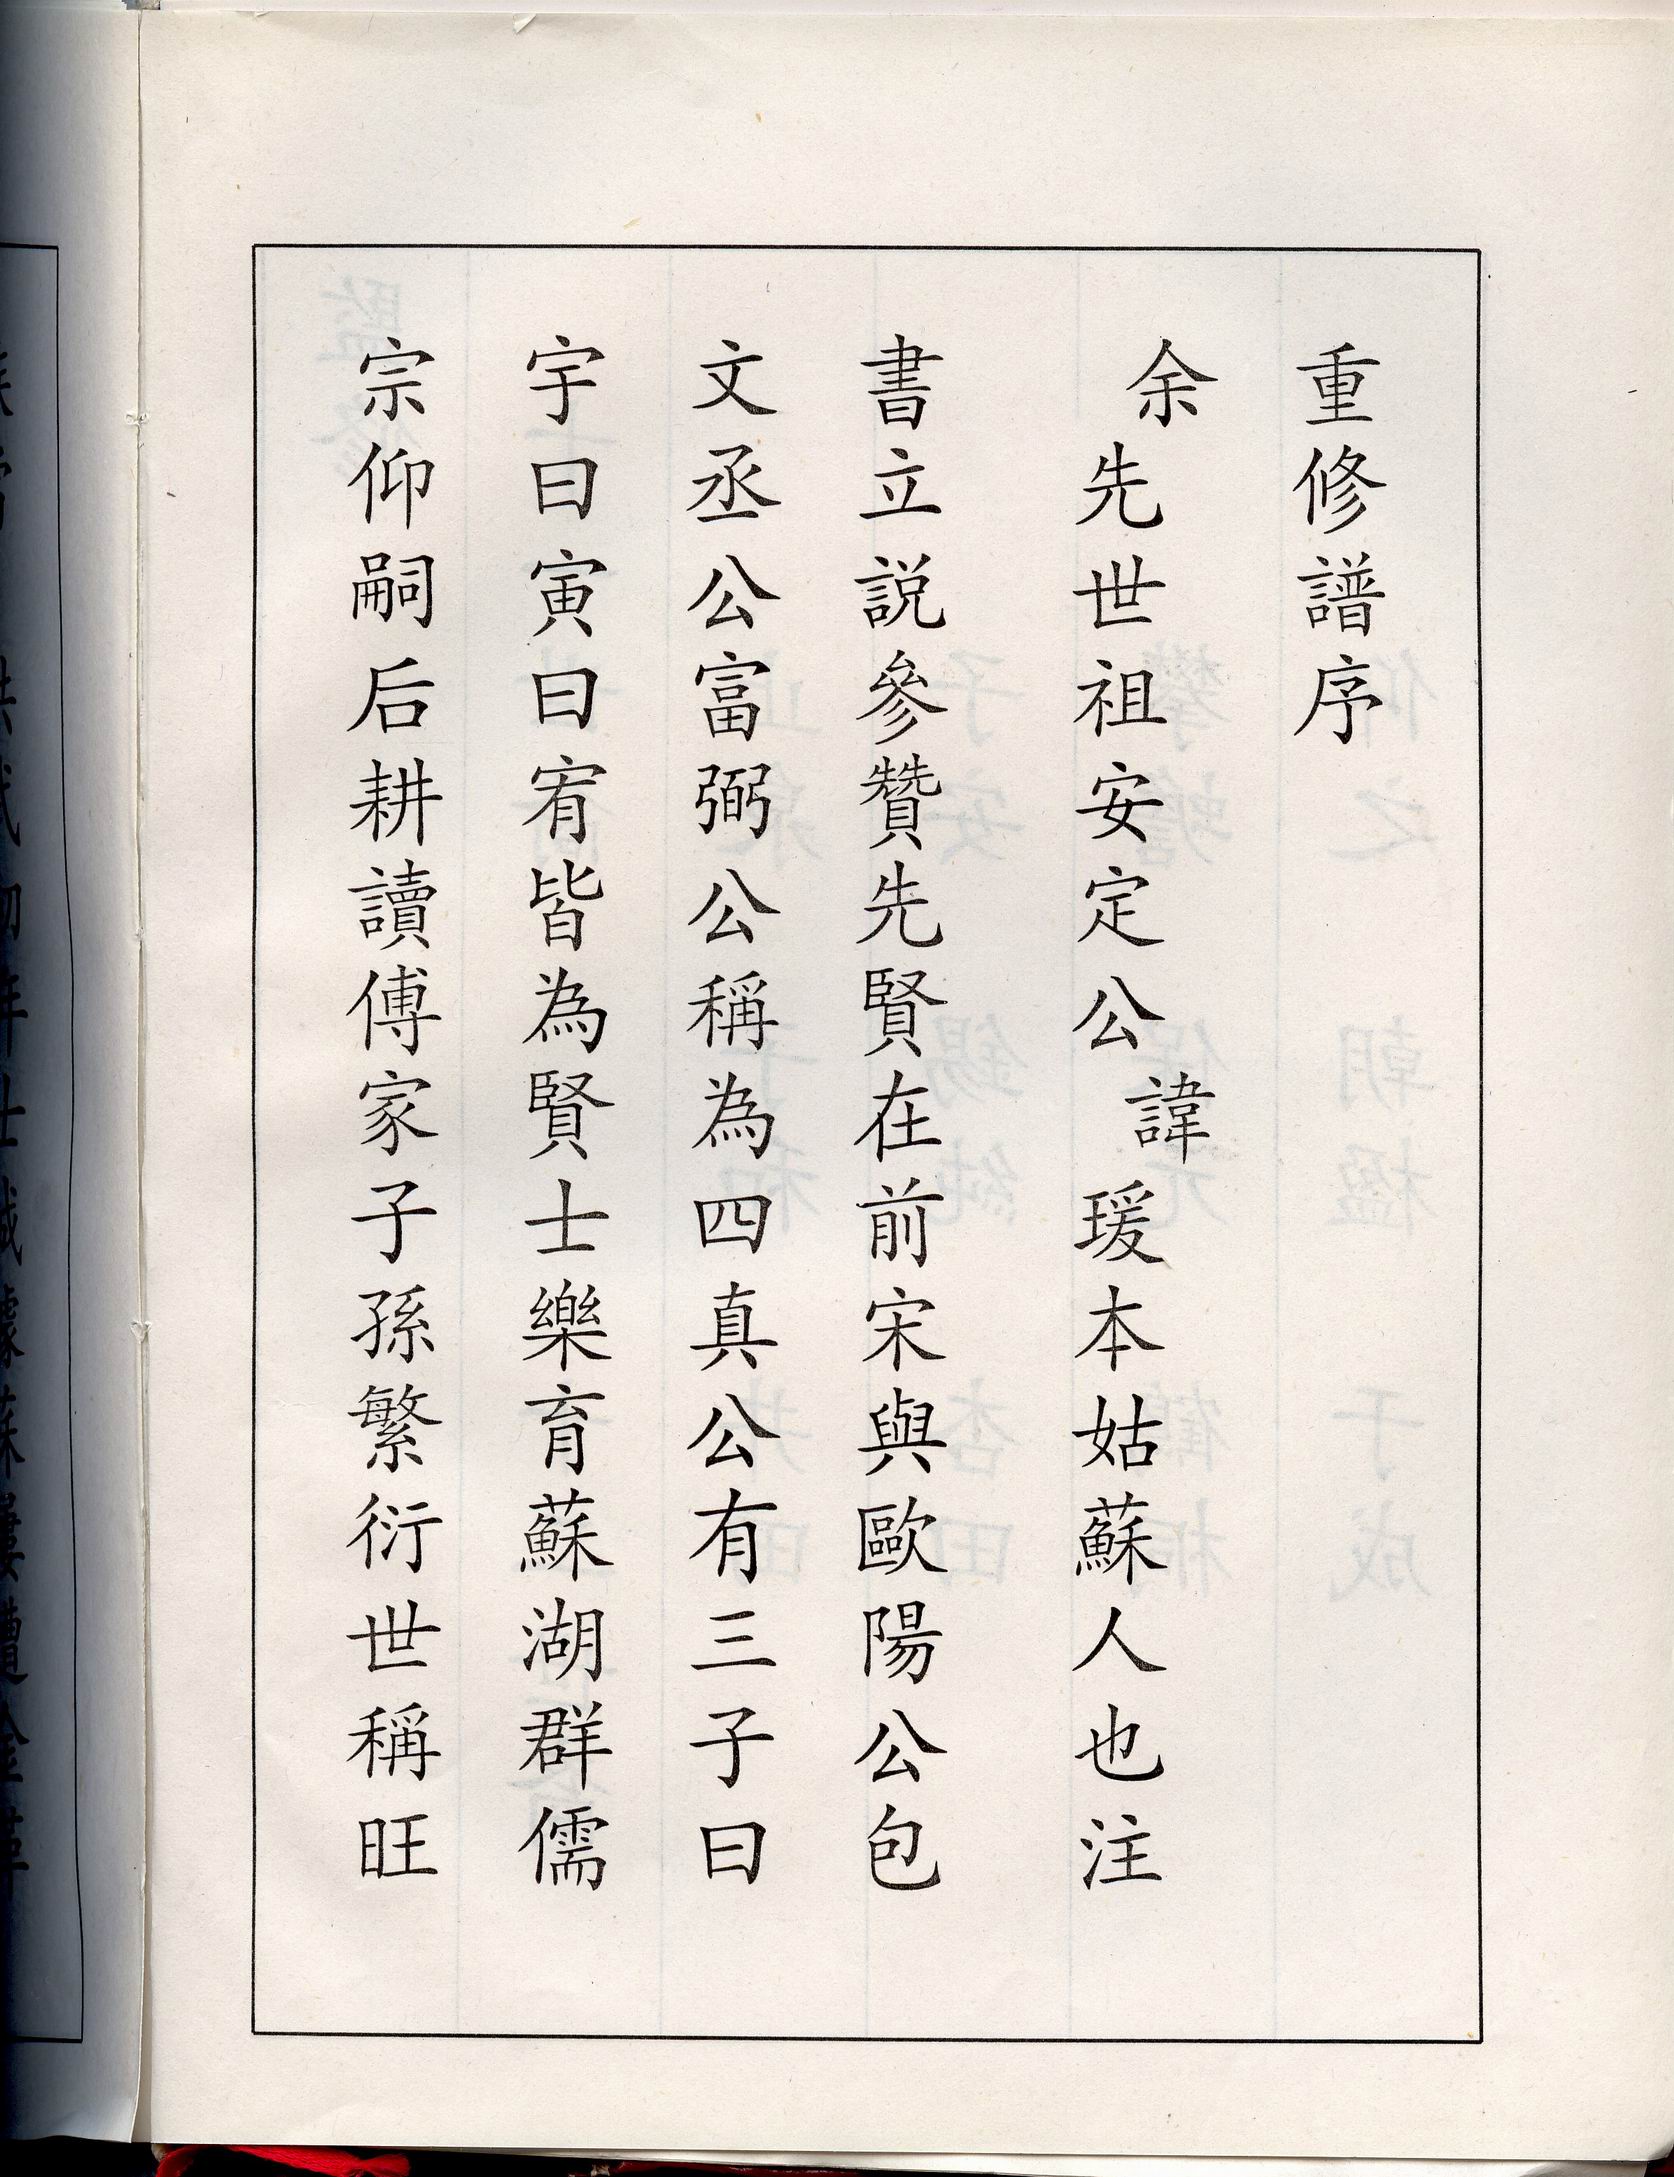 重修譜序
余先世祖安定公諱瑗本姑蘇人也注
書立説參贊先賢在前宋與歐陽公包
文丞公富弼公稱為四真公有三子曰
宇曰寅曰宥皆為賢士樂育蘇湖群儒
宗仰嗣后耕讀傅家子孫繁衍世稱旺